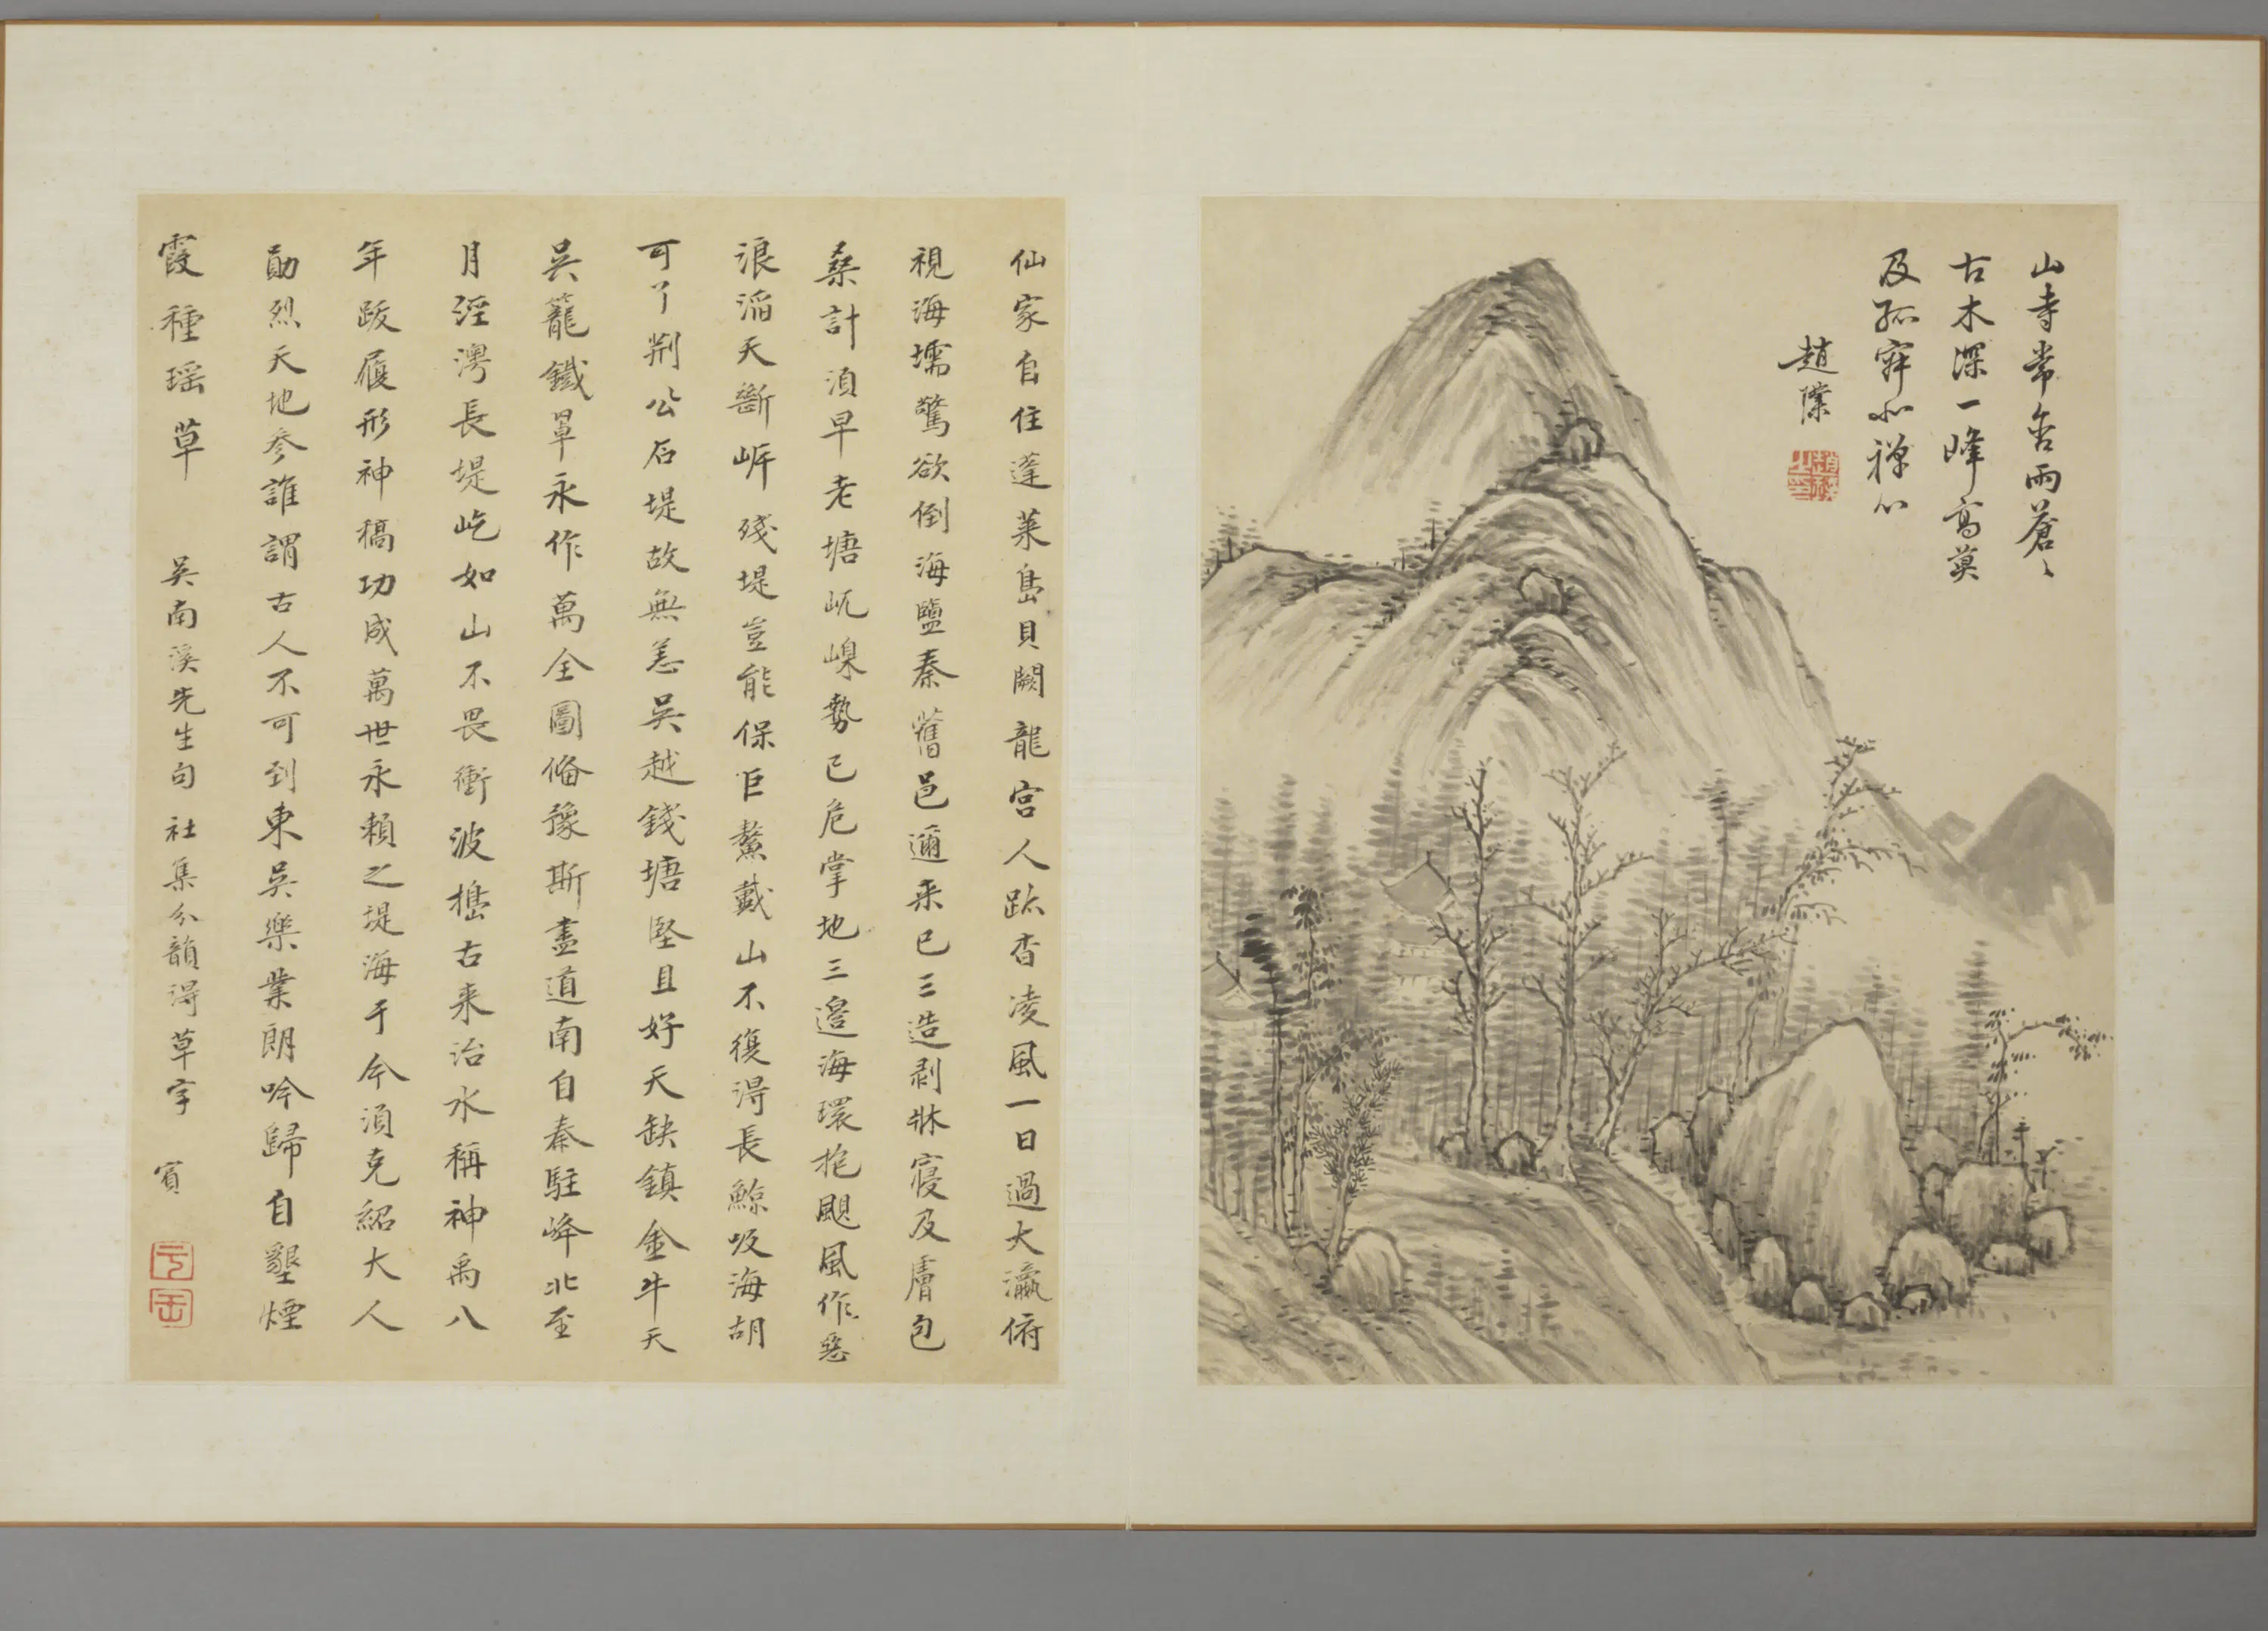 山寺常含雨蒼〻
古木深一峰高莫
及孤寂小禪心
趙
仙家自住蓬萊島貝闕龍宮人跡杳凌風一日過大瀛俯
視海壖驚欲倒海鹽秦舊邑邇来已三造剥牀寖及膚包
桑計須早老塘屼嵲勢已危掌地三邊海環抱颶風作惡
浪滔天斷岸殘堤豈能保巨鰲戴山不復得長鯨吸海胡
可了荆公石堤故無恙吳越錢塘堅且好天缺鎮金牛天
吳籠鐵罩永作萬全圖俻豫斯盡道南自秦駐峰北至
月涇灣長堤屹如山不畏衝波擣古来治水稱神禹八
年跋履形神槁功成萬世永頼之堤海于今須克紹大人
勛烈天地參誰謂古人不可到東吳樂業朗吟歸自墾煙
霞種瑶草 吴南溪先生句 社集分韻得草字 賓